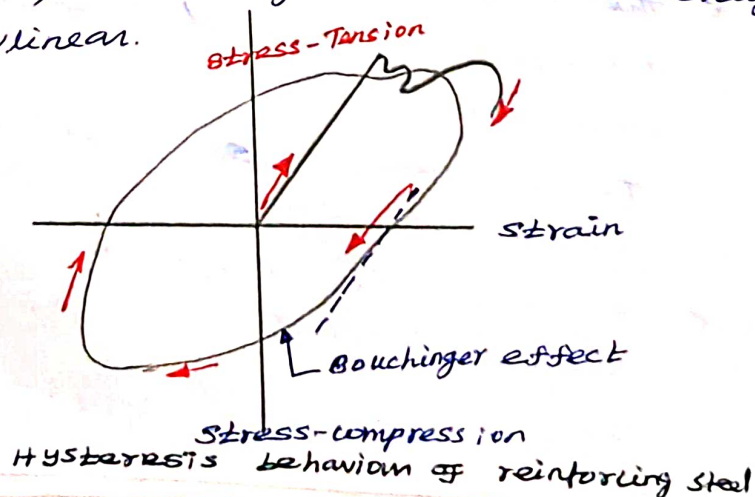 linear.
Stress-Tension
Strain
Bouchinger effect
Stress-compression
Hysteresis behaviour of reinforcing steel